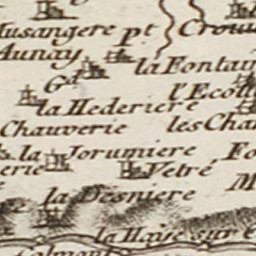 Musangere pt Crouil
Aunay
la Fontain
Gd
l'Ecol
la Hederiere
Chauverie les Cha
la Jorumiere Fo
erie
Vetré
M
la Desniere
la Haise sur
Colmont